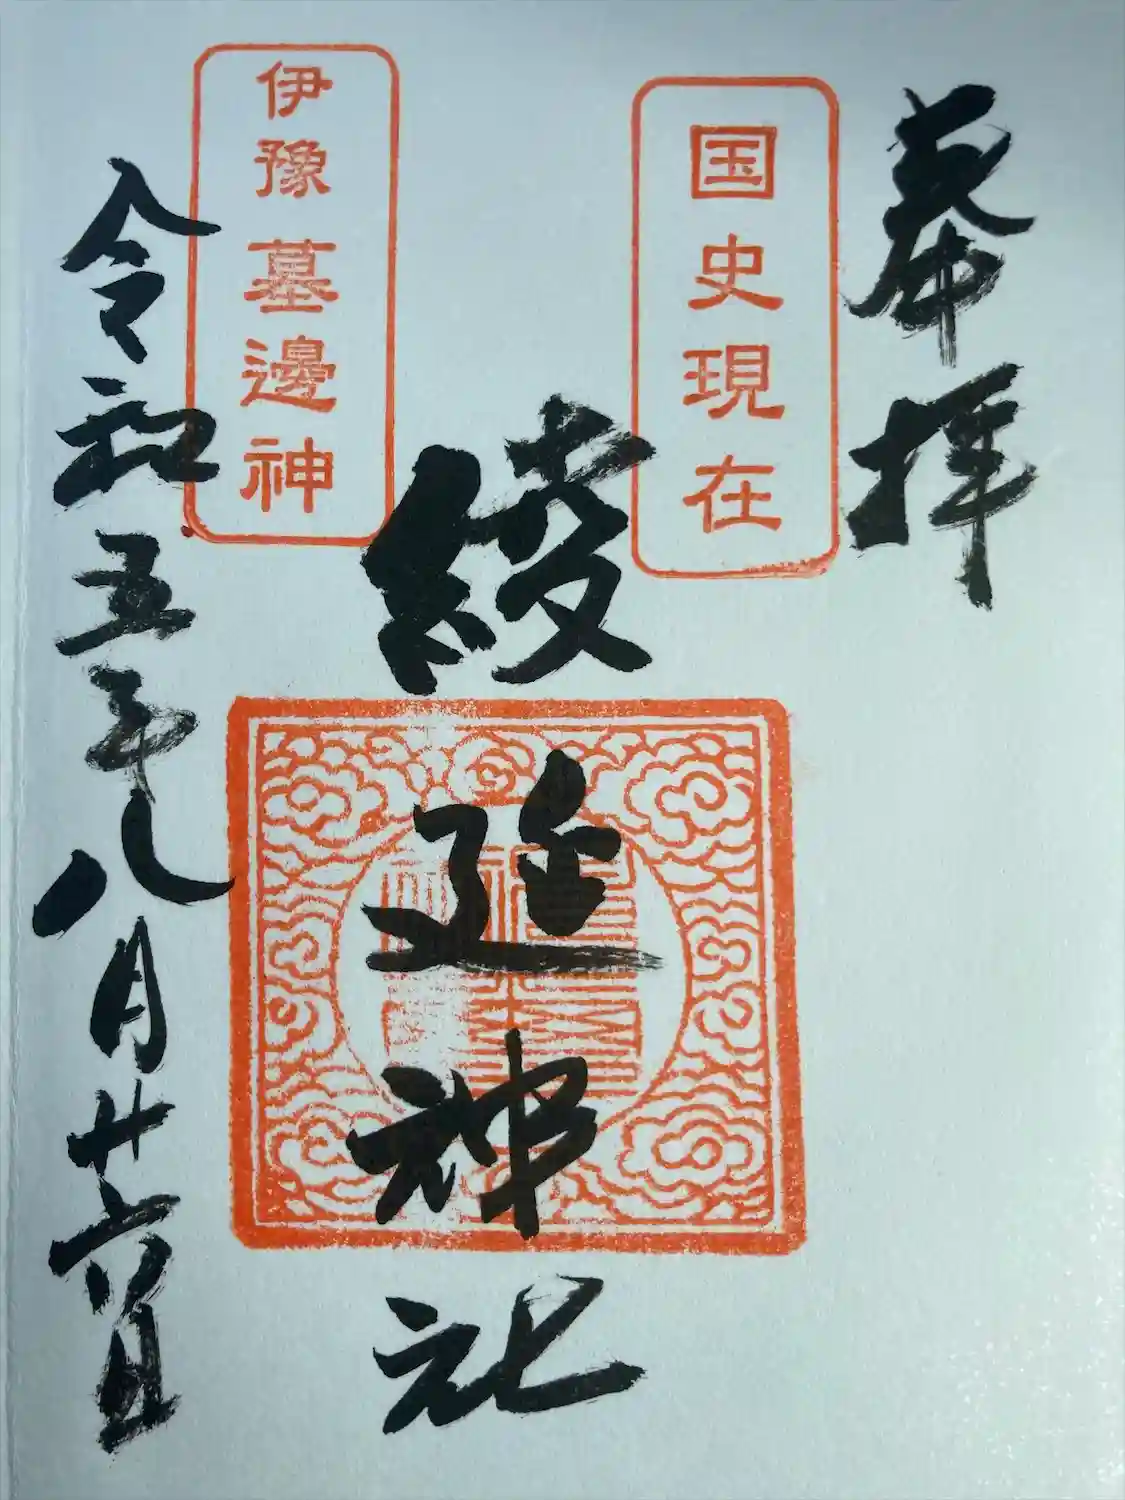 奉拝
国史現在
綾延神社
伊豫墓邊神
令和五年八月廿六日